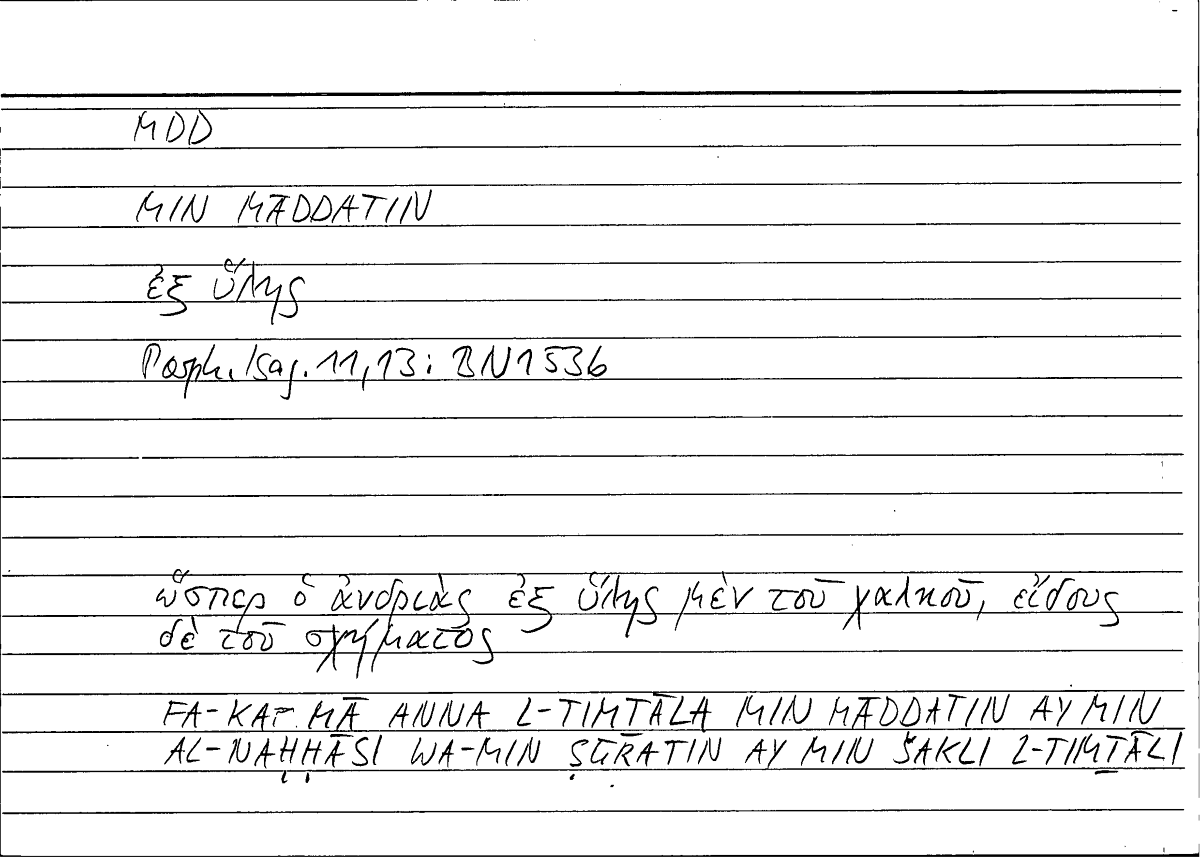 MDD
MIN MĀDDATIN
ἐξ ὕλης
Porph. Isag. 11,13: BN1536
ὥσπερ ὁ ἀνδριὰς ἐξ ὕλης μὲν τοῦ χαλκοῦ, εἴδους
δὲ τοῦ σχήματος
FA-KA- MĀ ANNA L-TIMṮĀLA MIN MĀDDATIN AY MIN
AL-NAḤḤĀSI WA-MIN ṢŪRATIN AY MIN ŠAKLI L-TIMṮĀLI